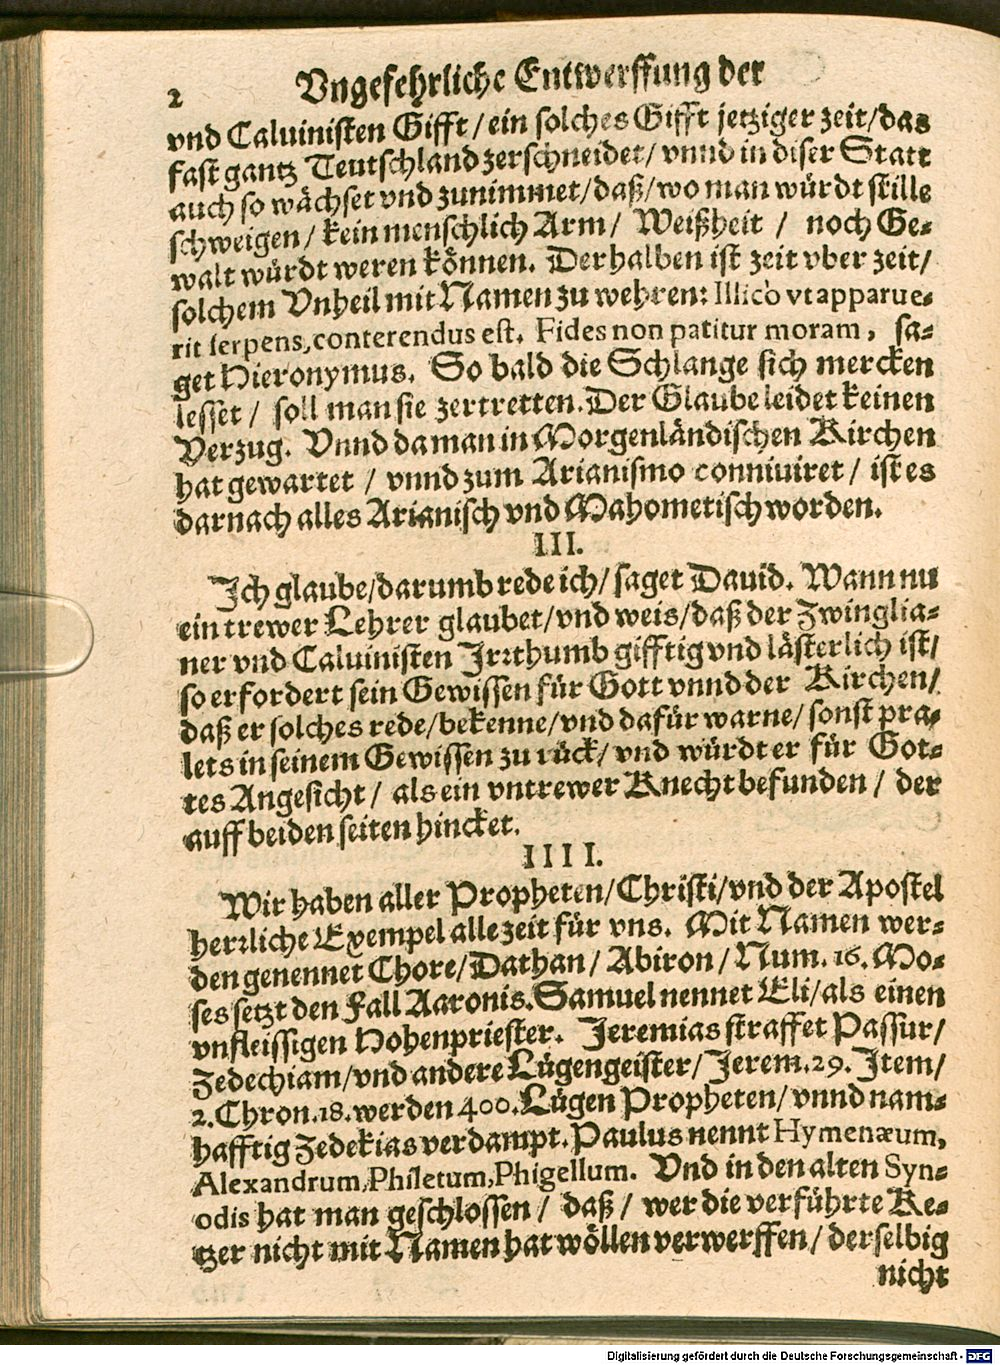 2 Vngefehrliche Entwerffung der
vnd Caluinisten Gifft / ein solches Gifft jetziger zeit/das
fast gantz Teutschland zerschneidet/ vnnd in diser Statt
auch so wächset vnd zunimmet/daß/wo man würdt stille
schweigen / kein menschlich Arm / Weißheit / noch Ge-
walt würdt weren können. Derhalben ist zeit vber zeit/
solchem Vnheil mit Namen zu wehren: Illicò vt apparue-
rit serpens, conterendus est. Fides non patitur moram, sa-
get Hieronymus. So bald die Schlange sich mercken
lesset / soll man sie zertretten. Der Glaube leidet keinen
Verzug. Vnnd da man in Morgenländischen Kirchen
hat gewartet / vnnd zum Arianismo conniuiret / ist es
darnach alles Arianisch vnd Mahometisch worden.
III.
Ich glaube/darumb rede ich/ saget Dauid. Wann nu
ein trewer Lehrer glaubet/vnd weis/daß der Zwinglia-
ner vnd Caluinisten Irrthumb gifftig vnd lästerlich ist/
so erfordert sein Gewissen für Gott vnnd der Kirchen/
daß er solches rede/bekenne/vnd dafür warne/ sonst pra-
lets in seinem Gewissen zu rück/ vnd würdt er für Got-
tes Angesicht / als ein vntrewer Knecht befunden / der
auff beiden seiten hincket.
IIII.
Wir haben aller Propheten/Christi/vnd der Apostel
herrliche Exempel allezeit für vns. Mit Namen wer-
den genennet Chore/Dathan / Abiron / Num. 16. Mo-
ses setzt den Fall Aaronis. Samuel nennet Eli/als einen
vnfleissigen Hohenpriester. Jeremias straffet Passur/
Zedechiam/vnd andere Lügengeister/ Jerem. 29. Item/
2. Chron. 18. werden 400. Lügen Propheten/ vnnd nam-
hafftig Zedekias verdampt. Paulus nennt Hymenæum,
Alexandrum, Philetum, Phigellum. Vnd in den alten Syn-
odis hat man geschlossen / daß / wer die verführte Ke-
tzer nicht mit Namen hat wöllen verwerffen / derselbig
nicht
Digitalisierung gefördert durch die Deutsche Forschungsgemeinschaft - DFG